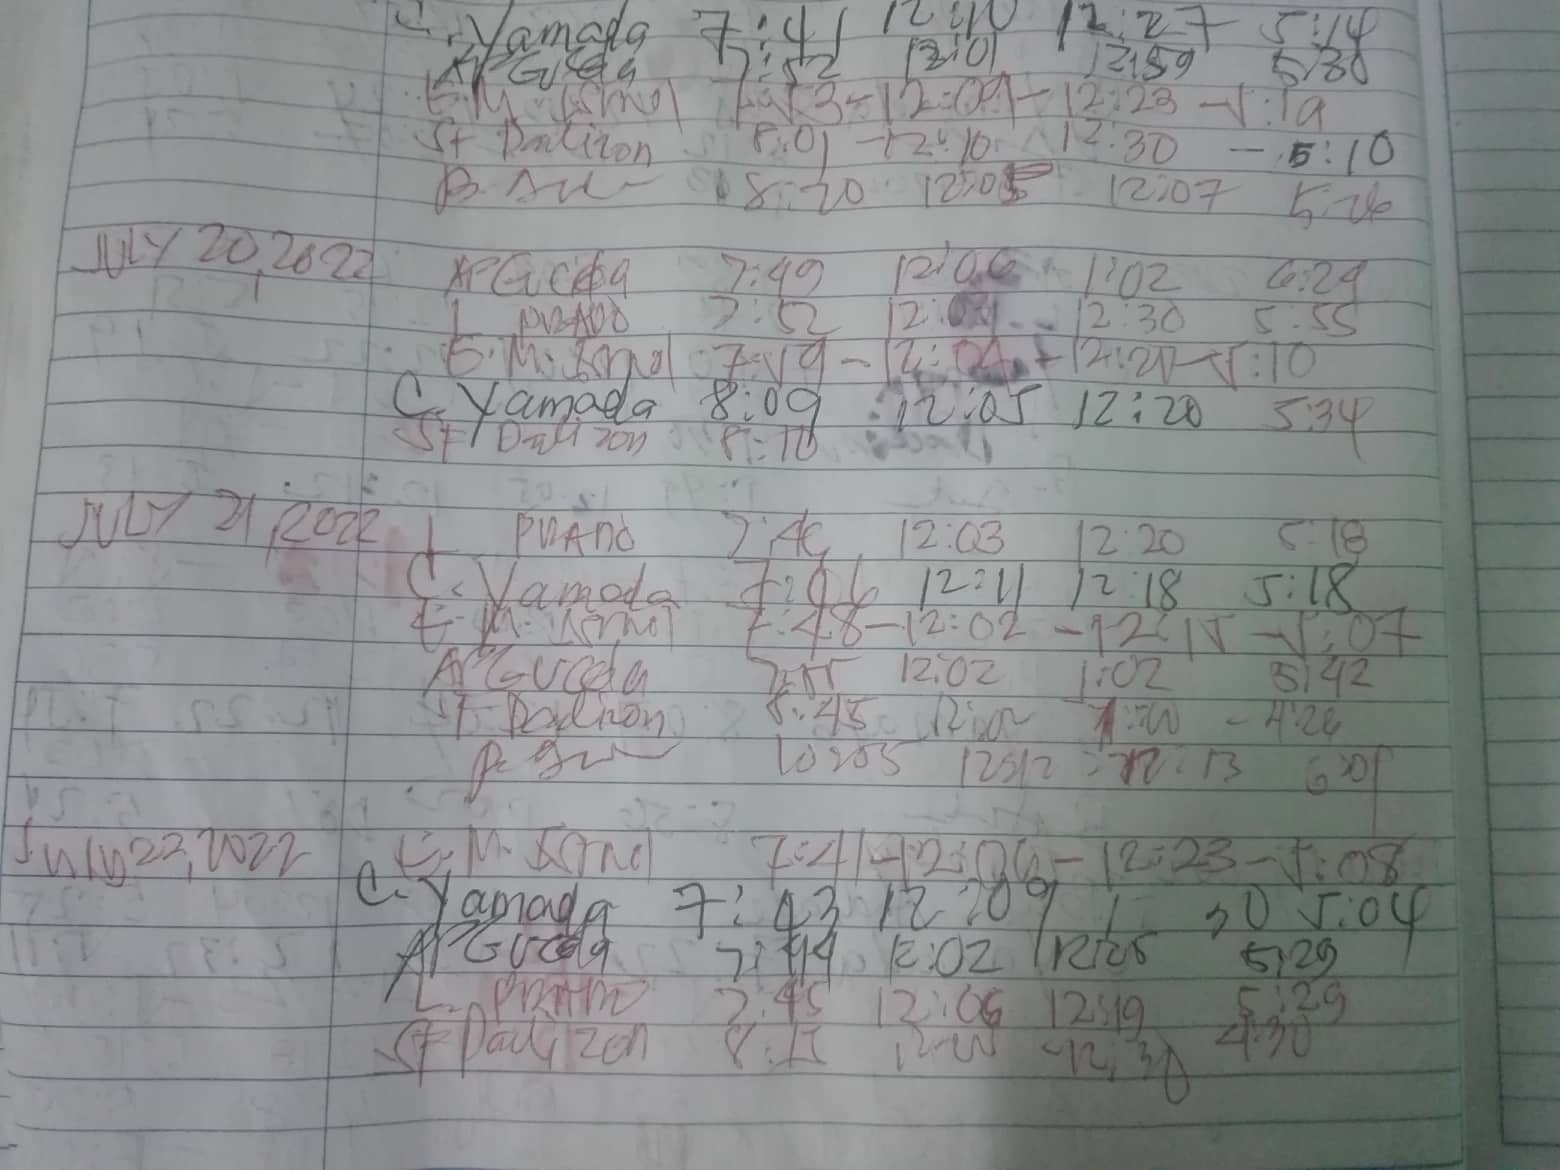 C. Yamada 7:41 12:10 12:27 5:14
AP Gueda 7:52 12:01 12:59 5:30
E.M. 12:09 - 12:23 - 5:19
St Dalizon 8:01 - 12:10 12:30 - 5:10
B. 8:20 12:05 12:07 5:26
JULY 20, 2022 AP Gueda 7:49 12:06 1:02 6:29
L PRADO 7:52 12:01 12:30 5:55
E.M. 7:59 - 12:04 12:20 - 5:10
C. Yamada 8:09 12:05 12:20 5:34
St Dalizon 8:10
JULY 21, 2022 L PRADO 7:46 12:03 12:20 5:18
C. Yamada 7:46 12:11 12:18 5:18
E.M. 7:48 - 12:02 - 12:15 - 5:07
AP Gueda 7:55 12:02 1:02 5:42
St Dalizon 8:45 1:20 - 4:26
10:05 12:12 12:13 6:01
July 22, 2022 E.M. 7:41 - 12:06 - 12:23 - 5:08
C. Yamada 7:43 12:09 1 30 5:04
AP Gueda 7:44 12:02 12:05 5:29
L. PRADO 7:45 12:06 12:19 5:29
St Dalizon 8:12 12:30 4:30